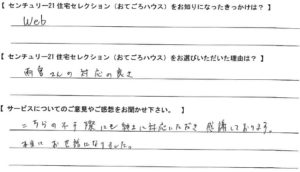 【 センチュリー21 住宅セレクション（おてごろハウス）をお知りになったきっかけは？ 】
Web
【 センチュリー21 住宅セレクション（おてごろハウス）をお選びいただいた理由は？ 】
さんの対応の良さ
【 サービスについてのご意見やご感想をお聞かせ下さい。 】
こちらの不手際にも紳士に対応いただき感謝しております。
本当にお世話になりました。